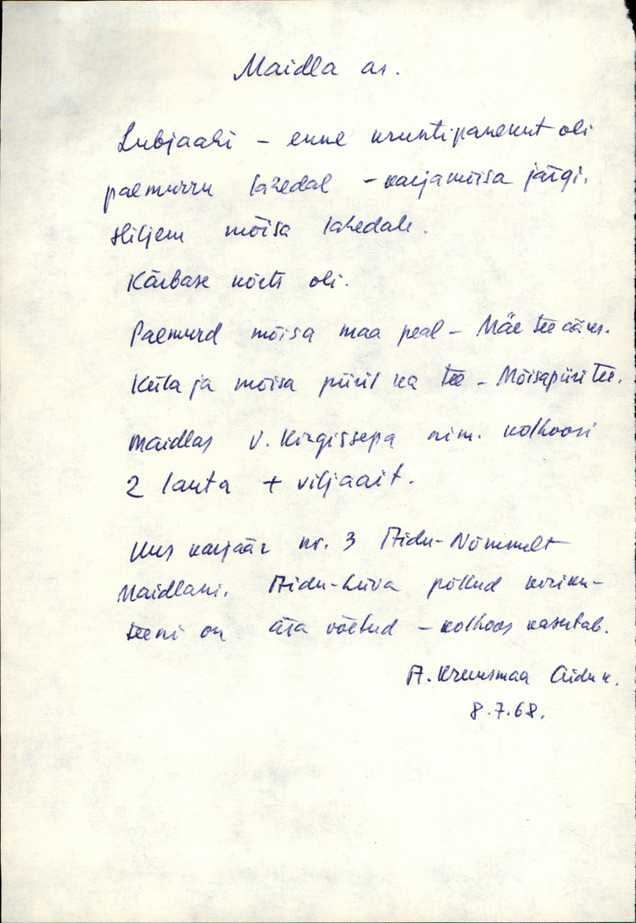 Maidla as.
Lubjaahi – enne kruntipanekut oli
paemurru lahedal – karjamõisa järgi.
Hiljem mõisa lahedale.
Kärbase kõrts oli.
Paemurd mõisa maa peal – Mäe tee ääres.
Küla ja mõisa piiril ka tee – Mõisapiiri tee.
Maidlas V. Kingissepa nim. kolhoosi
2 lauta + viljaait.
Uus karjäär nr. 3 Aidu-Nõmmelt
Maidlani. Aidu-Liiva põllud kiriku-
teeni on ära võetud – kolhoos kasutab.
A. Kruusmaa Aidu k.
8.7.68.